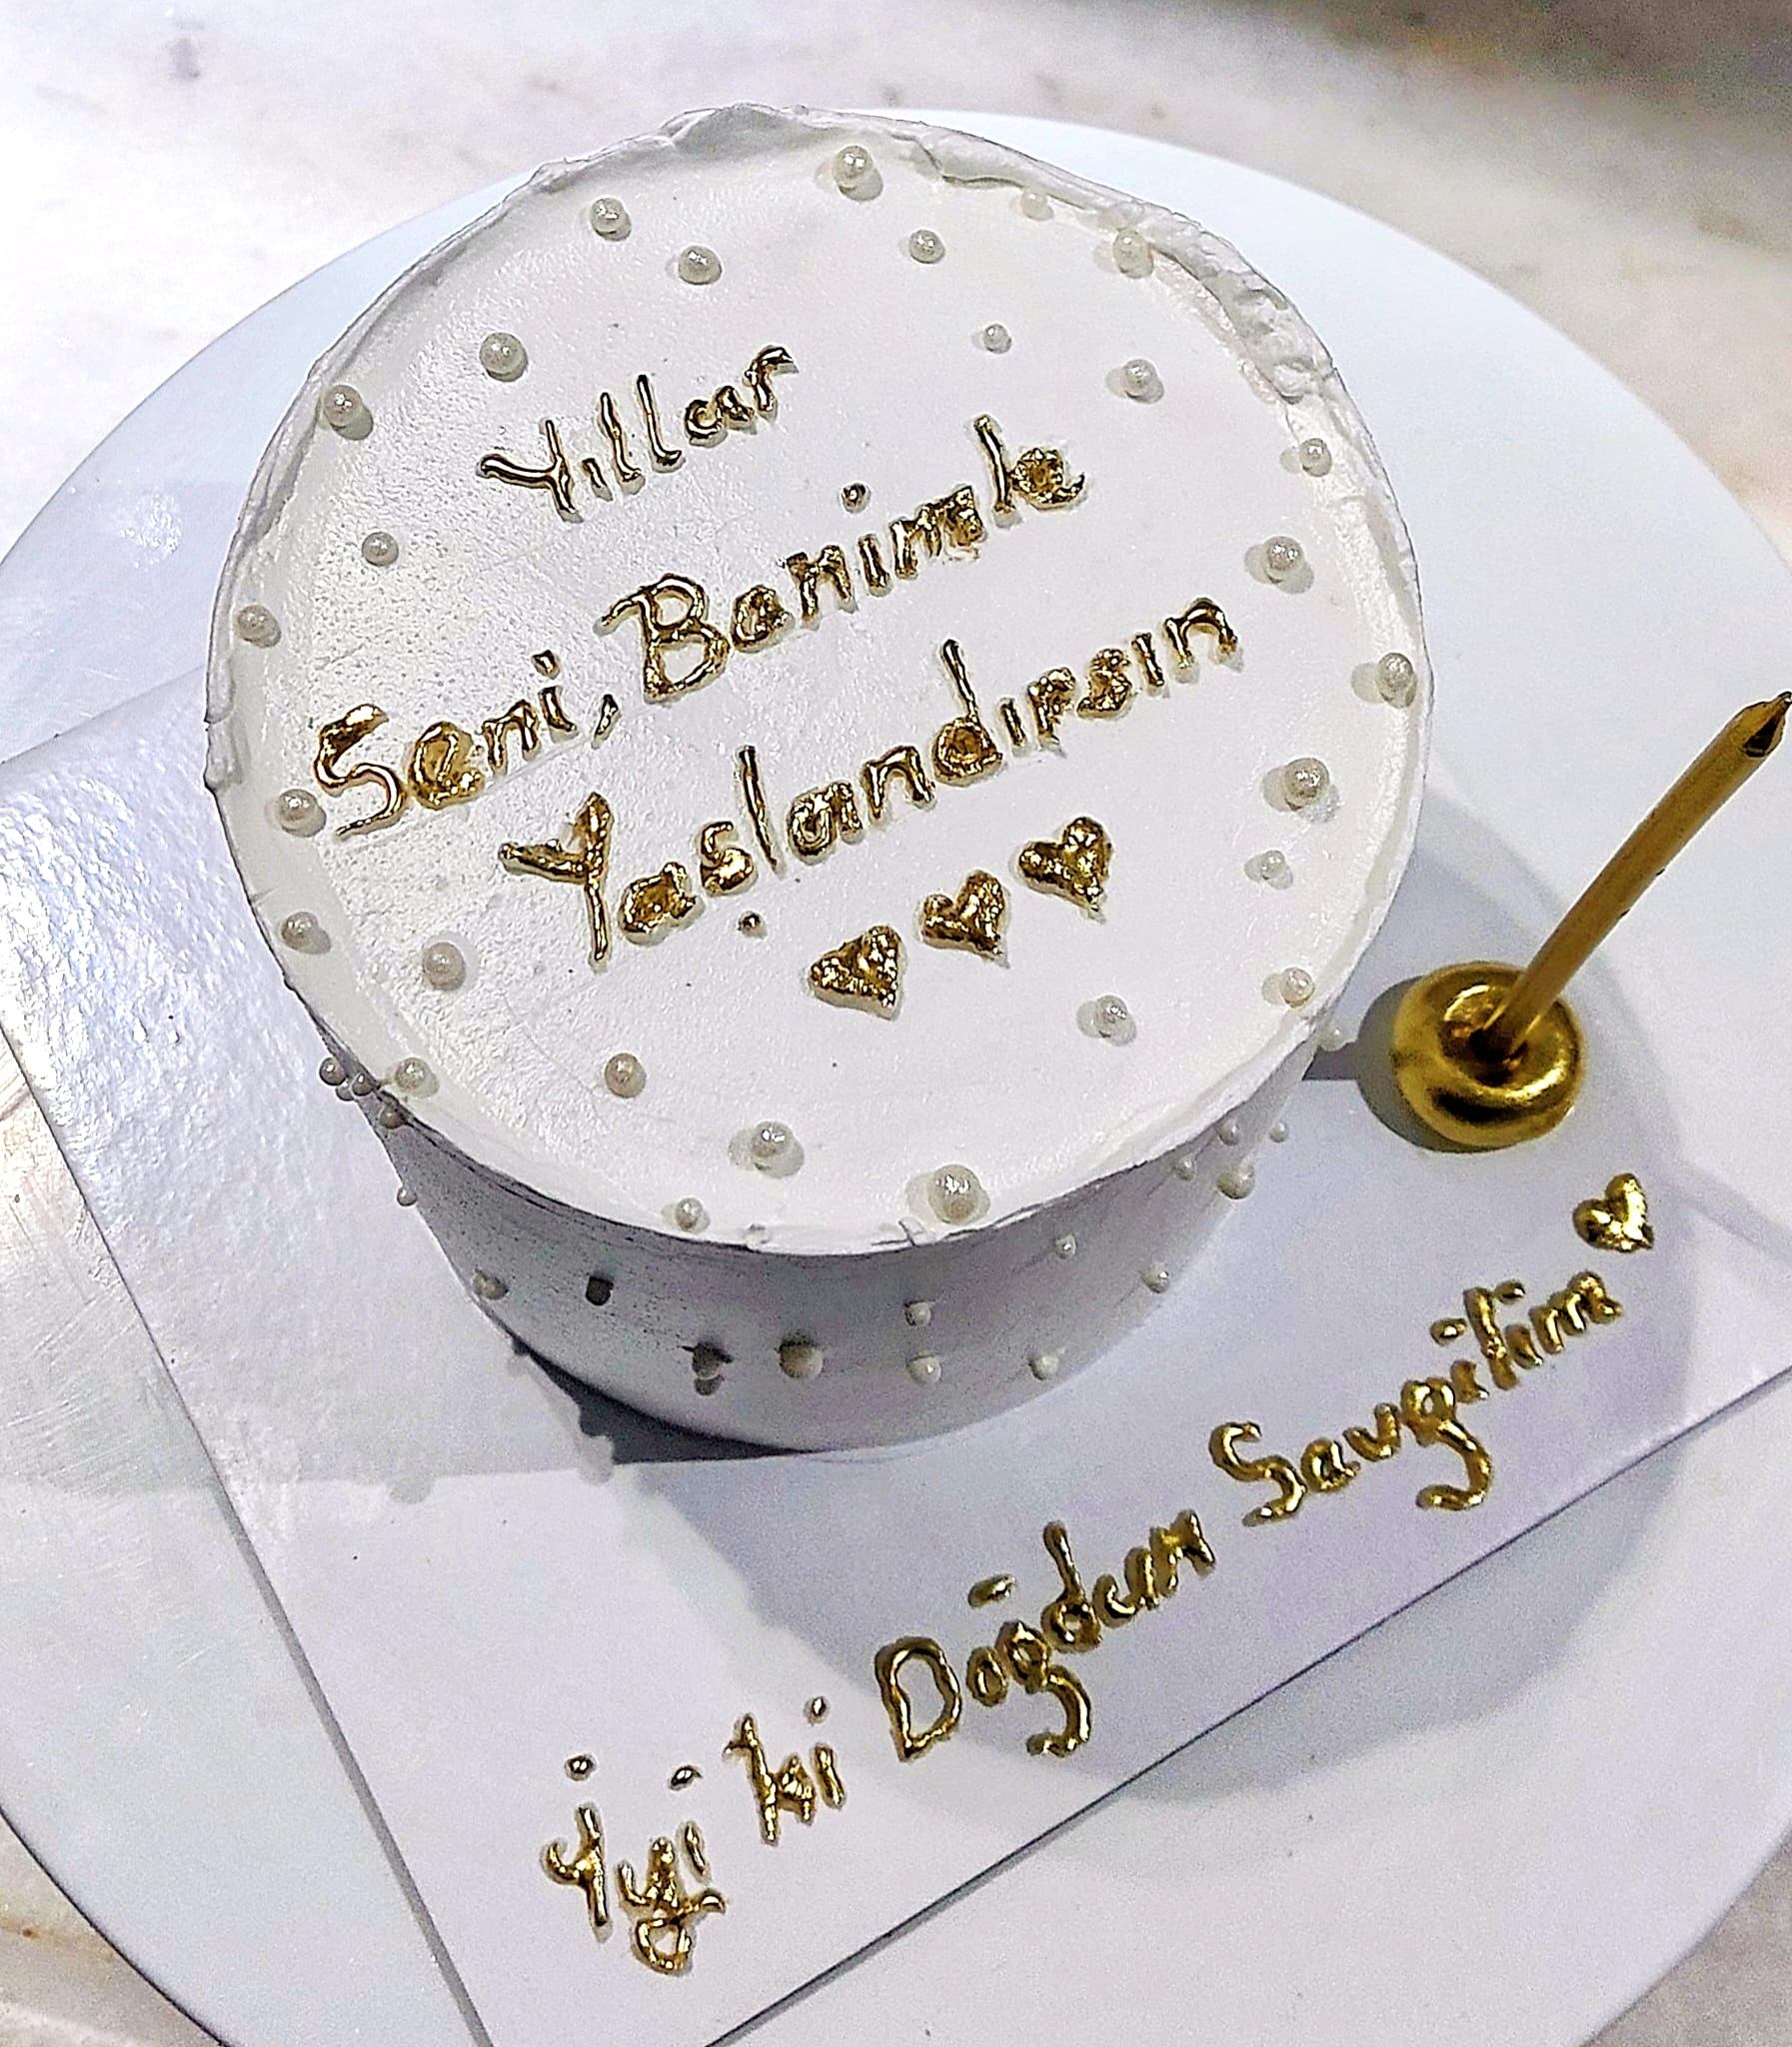 Yıllar
Seni, Benimle
Yaşlandırsın
İyi ki Doğdun Sevgilim